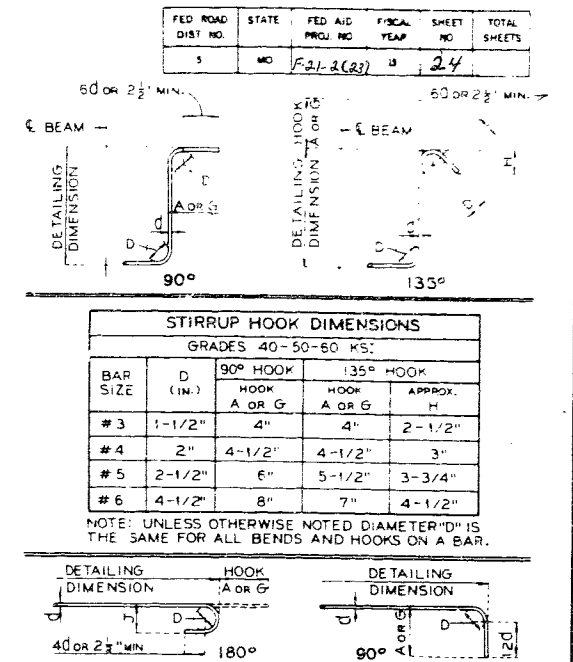 FED ROAD DIST NO. STATE FED AID PROJ. NO FISCAL YEAR SHEET NO TOTAL SHEETS
5 MO F-21-2(23) 19 24
6d OR 2½" MIN. 6d OR 2½" MIN.
℄ BEAM ℄ BEAM
DETAILING DIMENSION
D
A OR G
d
D
90°
DETAILING DIMENSION
HOOK A OR G
H
D
d
D
135°
STIRRUP HOOK DIMENSIONS
GRADES 40-50-60 KSI
BAR SIZE D (IN.) 90° HOOK 135° HOOK
HOOK A OR G HOOK A OR G APPROX. H
#3 1-1/2" 4" 4" 2-1/2"
#4 2" 4-1/2" 4-1/2" 3"
#5 2-1/2" 6" 5-1/2" 3-3/4"
#6 4-1/2" 8" 7" 4-1/2"
NOTE: UNLESS OTHERWISE NOTED DIAMETER "D" IS
THE SAME FOR ALL BENDS AND HOOKS ON A BAR.
DETAILING HOOK
DIMENSION A OR G
d J D
4d OR 2½" MIN 180°
DETAILING
DIMENSION
d A OR G D 12d
90°